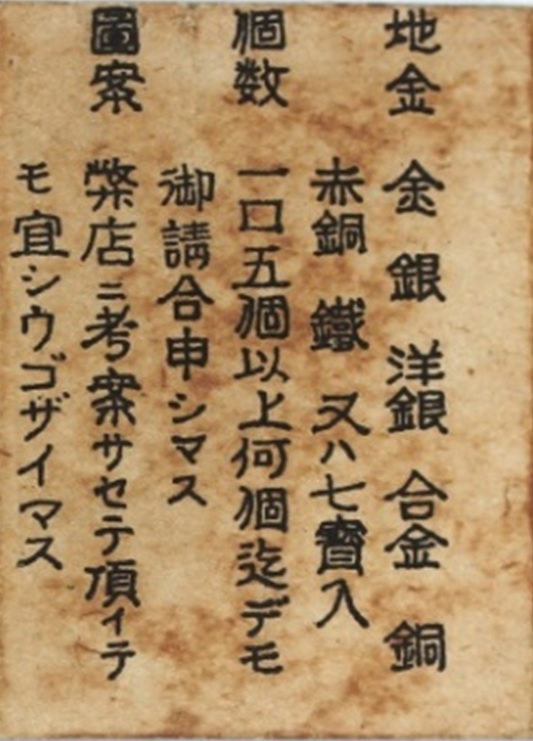 地金 金 銀 洋銀 合金 銅
赤銅 鐵 又ハ七寶入
個数 一口五個以上何個迄デモ
御請合申シマス
圖案 弊店ニ考案サセテ頂イテ
モ宜シウゴザイマス